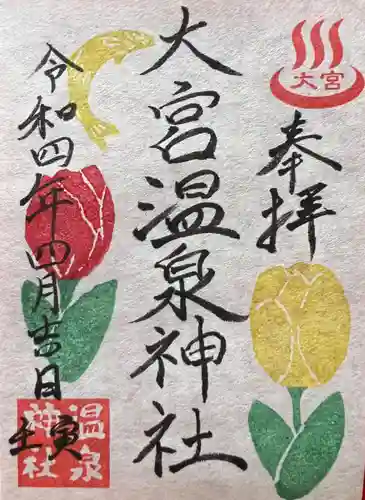 大宮
奉拝
大宮温泉神社
令和四年四月吉日
壬寅
温泉
神社